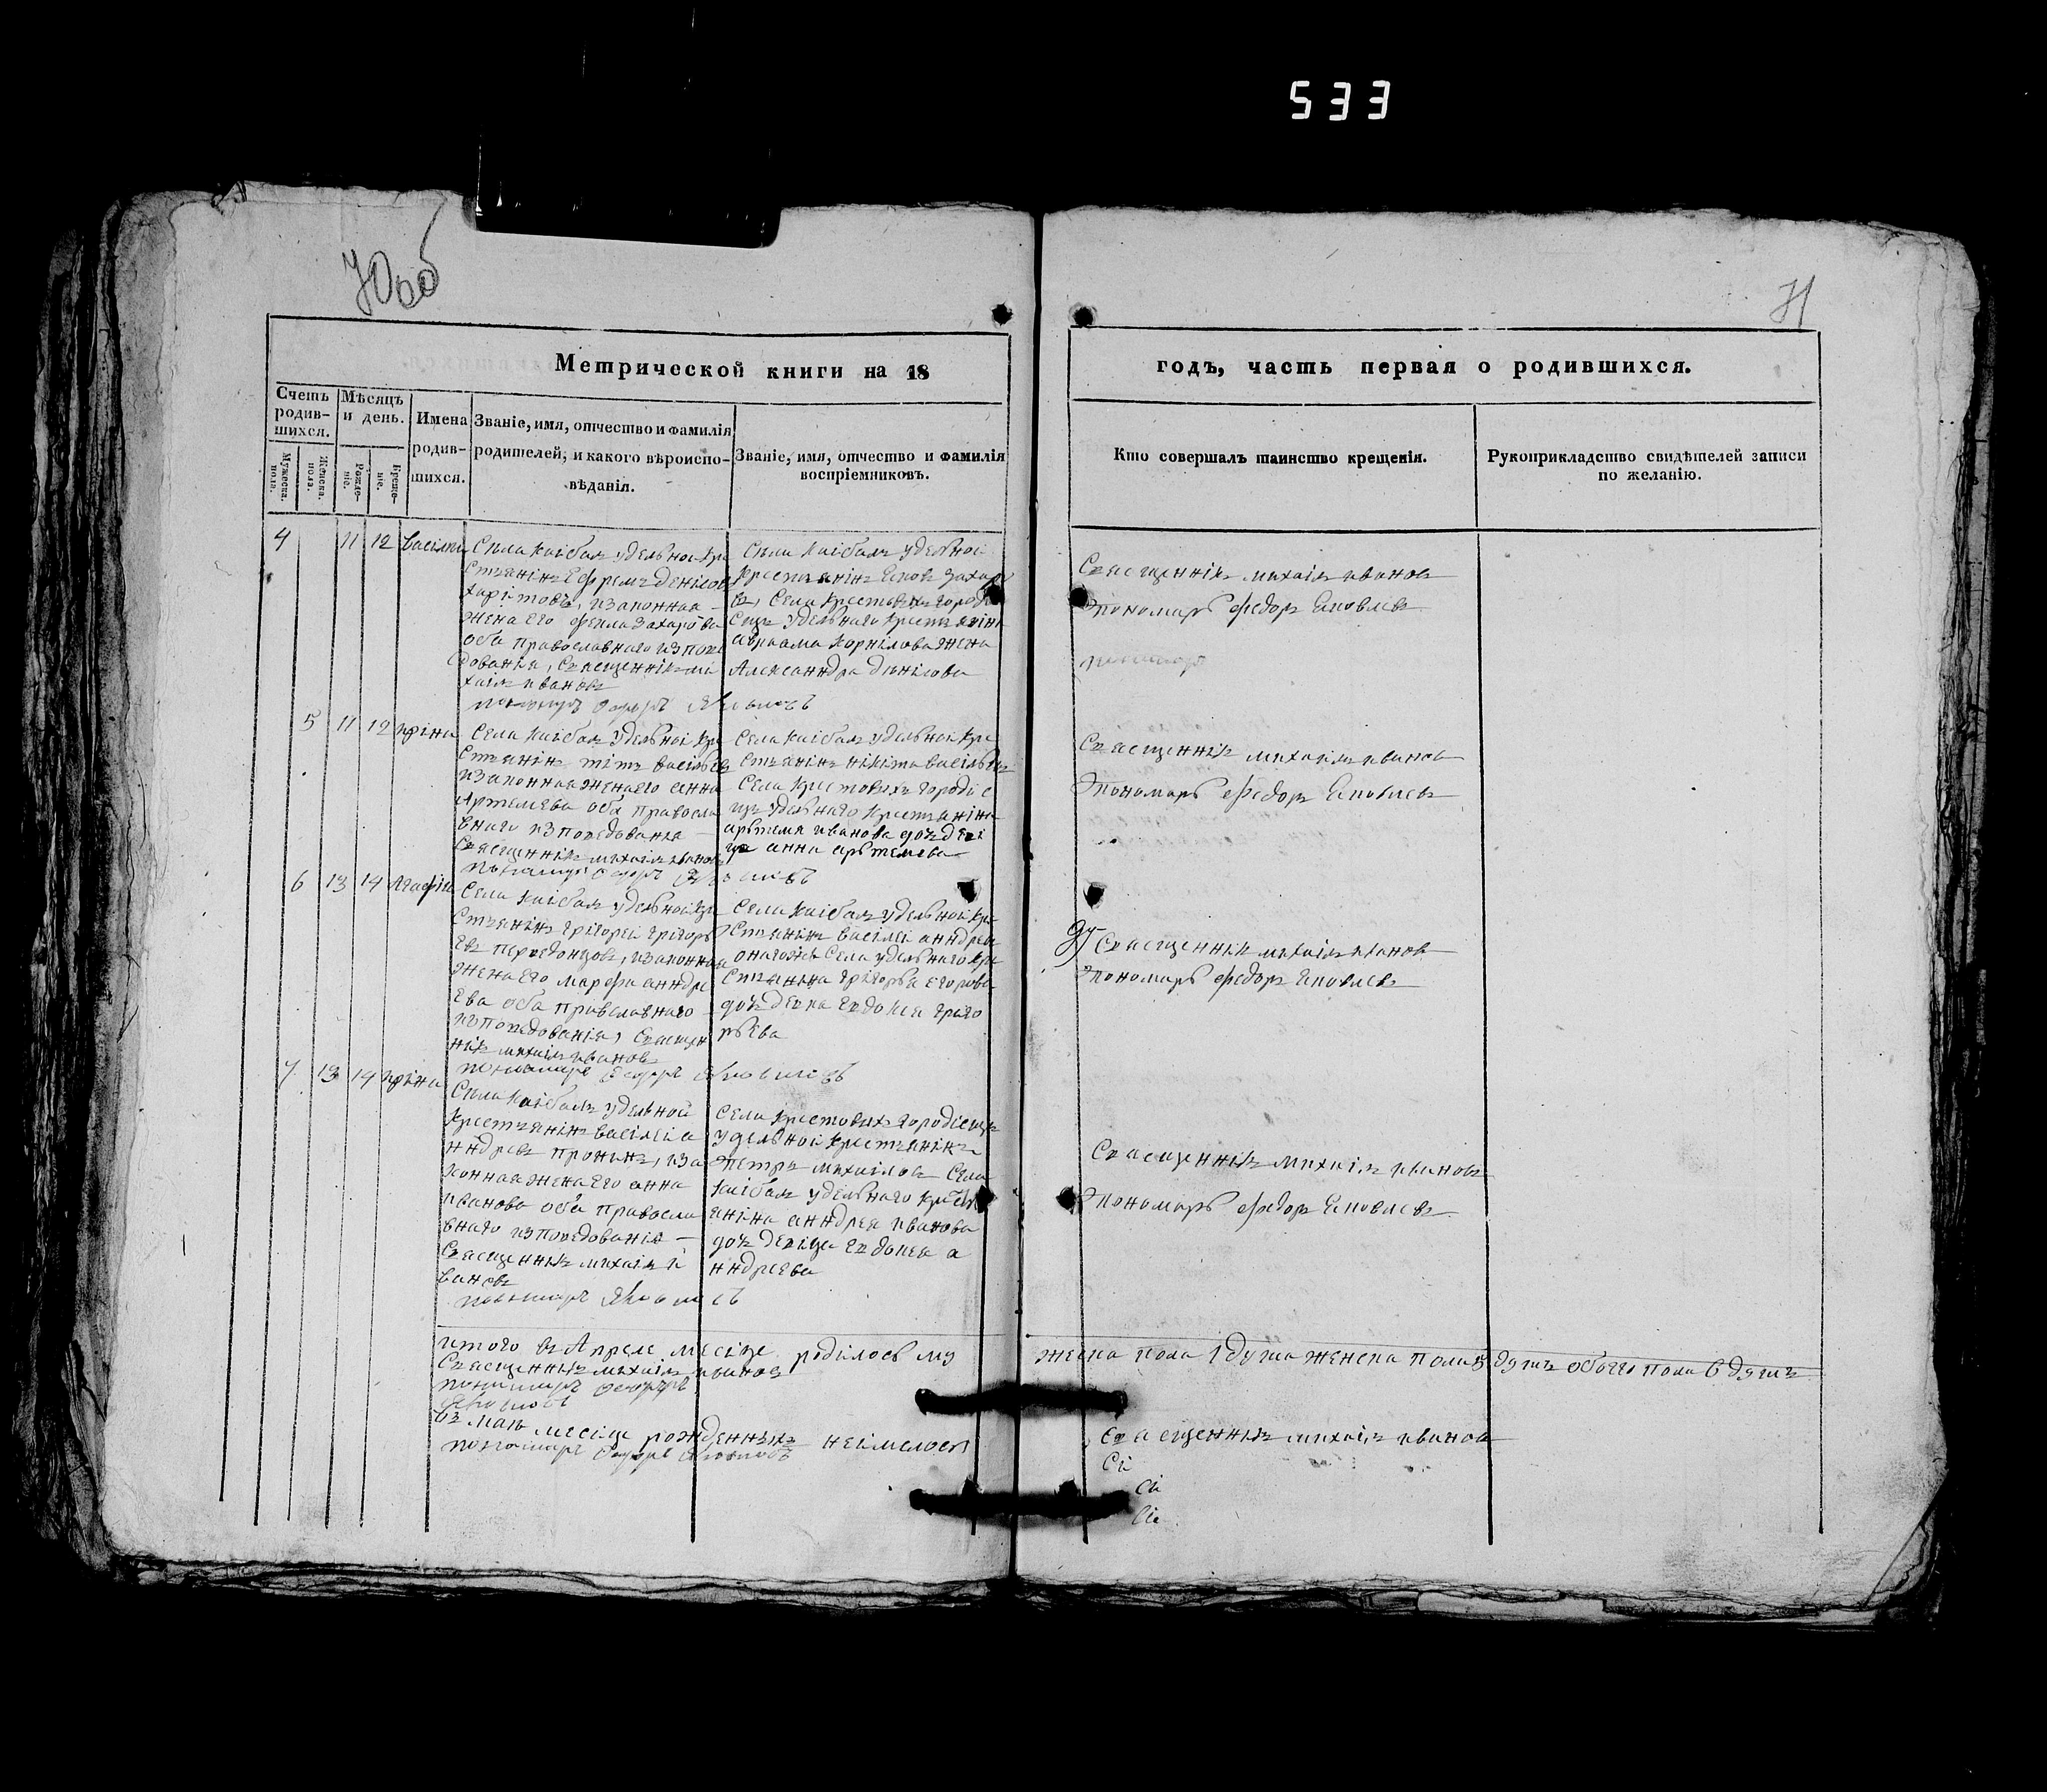 533
70об
71
Метрической книги на 18
годъ, часть первая о родившихся.
Счетъ родив-шихся.
Мужеска. пола.
Женска. пола.
Мѣсяцъ и день.
Рожде-ніе.
Креще-ніе.
Имена родив-шихся.
Званіе, имя, отчество и фамилія
родителей, и какого вѣроиспо-
вѣданія.
Званіе, имя, отчество и фамилія
воспріемниковъ.
Кто совершалъ таинство крещенія.
Рукоприкладство свидѣтелей записи
по желанію.
4 11 12 василии
Села каібалъ удельноі кре
стьянінъ Ефремъ денісов
харітовъ, изаконная
жена его фекла захарова
оба православнаго испове
дованія, священнікъ ми
хаілъ ивановъ
пономарь Федоръ Яковлевъ
Села каібалъ удельноі
крестьянінъ Яковъ захаро
въ, Села крестовыхъ городі
сщъ удельнаго крестьяніна
авраама корнілова жена
Александра денісова
Священнікъ михаілъ ивановъ
Пономарь федоръ Яковлевъ
пономарь
5 11 12 иріна
Села каібалъ удельноі кре
стьянінъ тітъ васільевъ
изаконная жена его анна
Артемьева оба правосла
внаго изповедованія
Священнікъ михаілъ ивановъ
пономарь Федоръ Яковлевъ
Села каібалъ удельноі кре
стьянінъ нікіта васільевъ
Села крестовихъ городіс
щъ удельнаго крестьяніна
арьтемя иванова дочь деві
ца анна арьтемева
Священнікъ михаілъ иванов
Пономарь федоръ Яковлевъ
6 13 14 Агафія
Села каібалъ удельноі кре
стьянінъ грігореі грігорь
евъ переодонцовъ, изаконная
жена его марфа анндре
ева оба православнаго
изповедованія, священ
нікъ михаілъ ивановъ
пономарь Федоръ Яковлевъ
Села каібалъ удельноі кре
стьянінъ васілеі анндреи
онагожъ Села удельнаго кре
стьянина грігорья егорова
дочь девка евдокея гріго
рьева
Священнік михаілъ ивановъ
Пономарь федоръ Яковлевъ
7 13 14 иріна
Села каібалъ удельной
крестьянінъ васілеі а
ндревъ пронинъ, иза
конная жена его анна
иванова оба правосла
внаго изповедованія
Священникъ михаілъ и
вановъ
пономарь Яковлевъ
Села крестовихъ городісщъ
удельноі крестьянінъ
Петръ михаіловъ Села
каібалъ удельнаго крестьь
яніна анндрея иванова
дочь девіца евдокея а
нндреева
Священнікъ михаілъ ивановъ
Пономарь федоръ Яковлевъ
итого въ Апреле месіце роділось му
жеска пола 1 душа женска пола 5 душъ обоего пола 6 душъ
Священникъ михаілъ ивановъ
пономарь Федоръ
Яковлевъ
въ маіе месіце рожденныхъ неімелось
пономарь Федоръ Яковлевъ
Священникъ михаілъ ивановъ